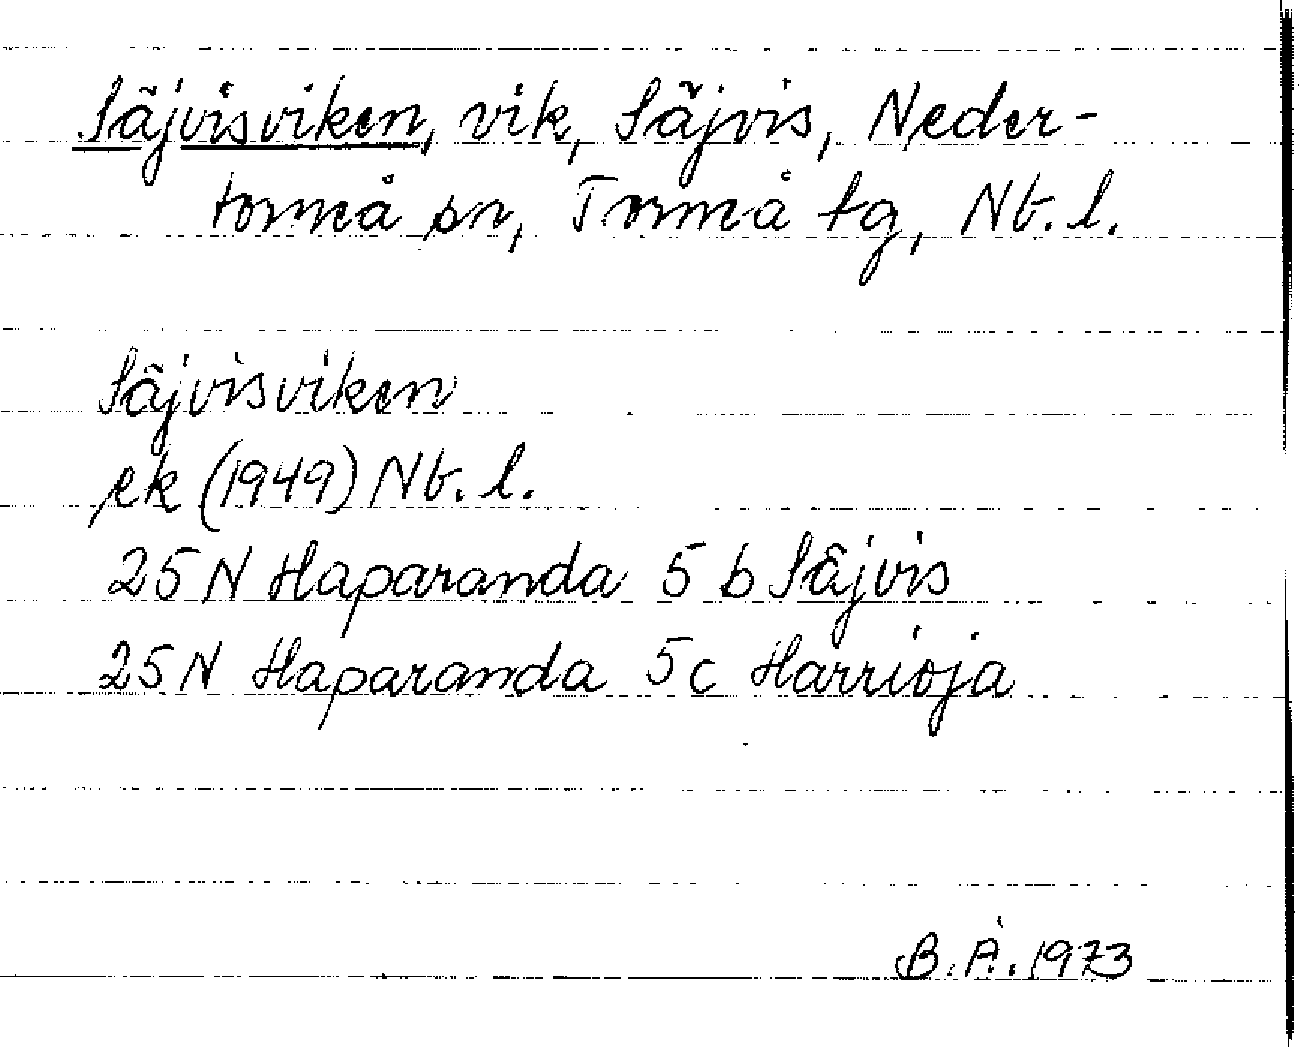 Säjvisviken, vik, Säjvis, Neder-
torneå sn, Torneå tg, Nb. l.
Säjvisviken
ek (1949) Nb. l.
25 N Haparanda 5 b Säjvis
25 N Haparanda 5 c Harrioja
B. Å. 1973